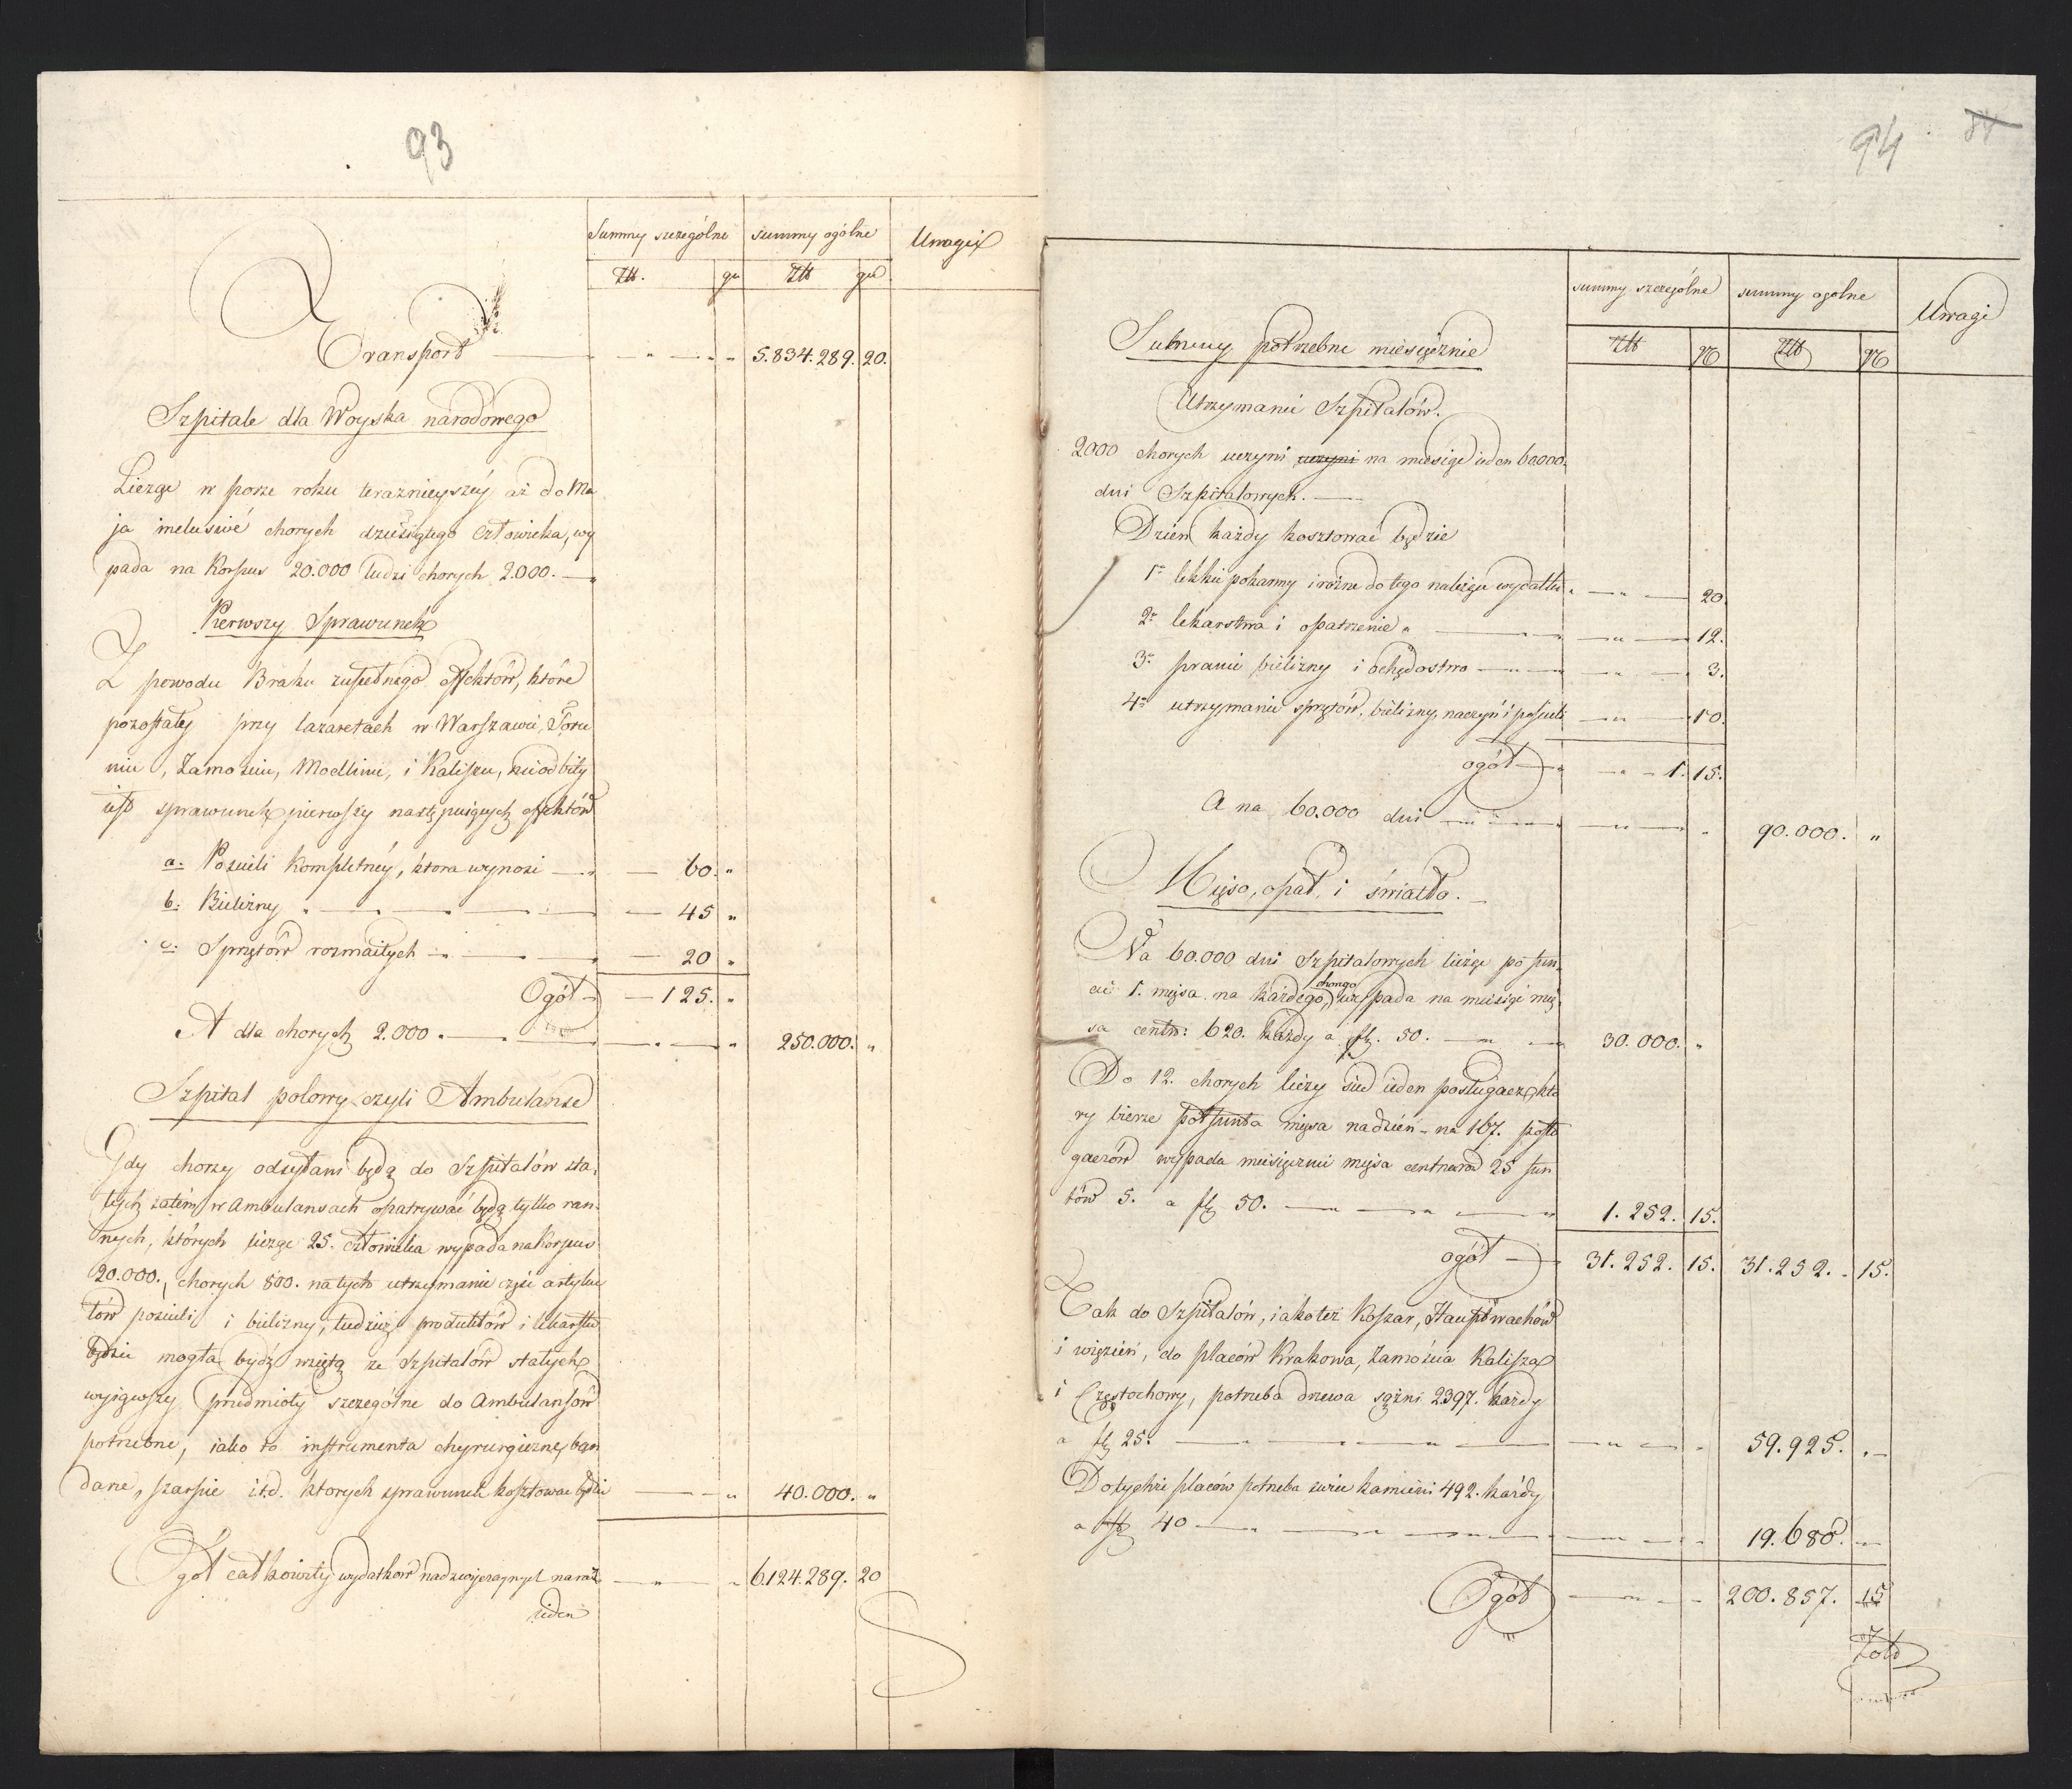 93
Summy szczególne summy ogólne Uwagi
Złt. gr Złt gr
Transport 5.834.289. 20.
Szpitale dla Woyska narodowego
Licząc w porze roku teraznieyszey aż do Ma
ja inclusivé chorych dziesiątego człowieka, wy
pada na Korpus 20.000 ludzi chorych 2.000.
Pierwszy Sprawunek
Z powodu Braku zupełnego effektów, które
pozostały przy lazaretach w Warszawie, Toru
niu, Zamościu, Modlinie, i Kaliszu, nieodbity
iest sprawunek pierwszy następuiących effektów
a. Pościeli Kompletnéy, ktora wynosi 60. "
b. Bielizny " 45 "
c. Sprzętów rozmaitych 20 "
Ogół 125. "
A dla chorych 2.000. 250.000. "
Szpital polowy czyli Ambulanse
Gdy chorzy odsyłani będą do Szpitalów sta,
łych zatém w Ambulansach opatrywać będą tylko ran,
nych, których licząc 25. człowieka wypada na Korpus
20.000., chorych 800. na tych utrzymanie część artyku
łów pościeli i bielizny, tudzież produktów i lekarstw
będzie mogła bydź wziętą ze Szpitalów stałych,
wyiąwszy przedmioty szczególne do Ambulansów
potrzebne, iako to instrumenta chyrurgiczne, ban
darze, szarpie itd. ktorych sprawunek kosztować będzie 40.000. "
Ogół całkowity wydatków nadzwyczaynych na raz 6.124.289. 20
ieden
94 84
summy szczególne summy ogólne Uwagi
Złt gr Złt gr
Summy potrzebne miesięcznie
Utrzymanie Szpitalów.
2000 chorych uczyni uczyni na miesiąc ieden 60.000.
dni Szpitalowych.
Dzien każdy kosztować będzie
1o lekkie pokarmy i rożne do tego należące wydatki 20.
2o lekarstwa i opatrzenie " 12.
3o pranie bielizny i ochędostwo 3.
4o utrzymanie sprzętów, bielizny, naczyń i pościeli 10.
ogół 1. 15.
A na 60.000 dni 90.000. "
Mięso, opał, i światło.
Na 60.000 dni Szpitalowych licząc po fun,
cie 1. mięsa na każdego, wypada na miesiąc mię
chorego
sa centn: 620. każdy a fl. 50. 30.000. "
Do 12. chorych liczy sie ieden posługacz, któ
ry bierze pół funta mięsa na dzień – na 167. posłu
gaczów wypada miesięcznie mięsa centnarów 25 fun
tów 5. a fl 50. 1.252. 15.
ogół 31.252. 15. 31.252. 15.
Tak do Szpitalów, iako też Koszar, Hauptwachów
i więzień, do placów Krakowa, Zamościa Kalisza
i Częstochowy, potrzeba drzewa sążni 2397. każdy
a fl 25. 59.925.
Do tychże placów potrzeba świec kamieni 492. każdy
a fl 40 19.680.
Ogół 200.857. 15
Żołd